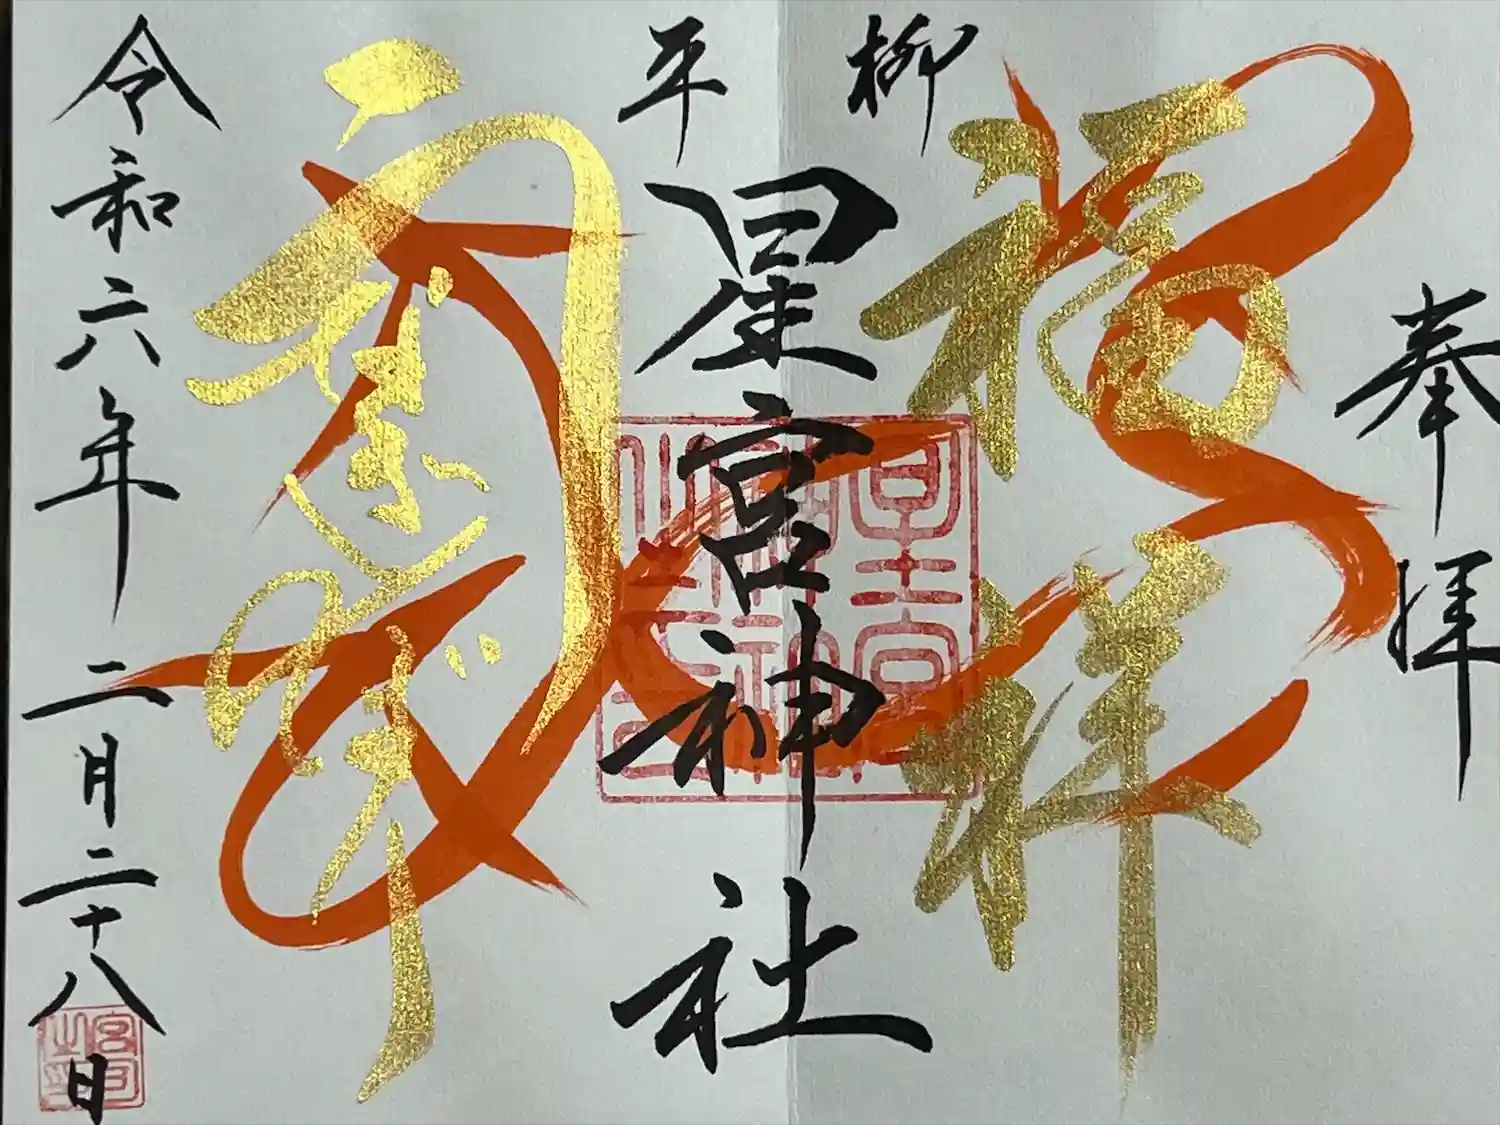 奉拝
福祥
柳平
星宮神社
星宮神社之印
令和六年二月二十八日
宮司之印